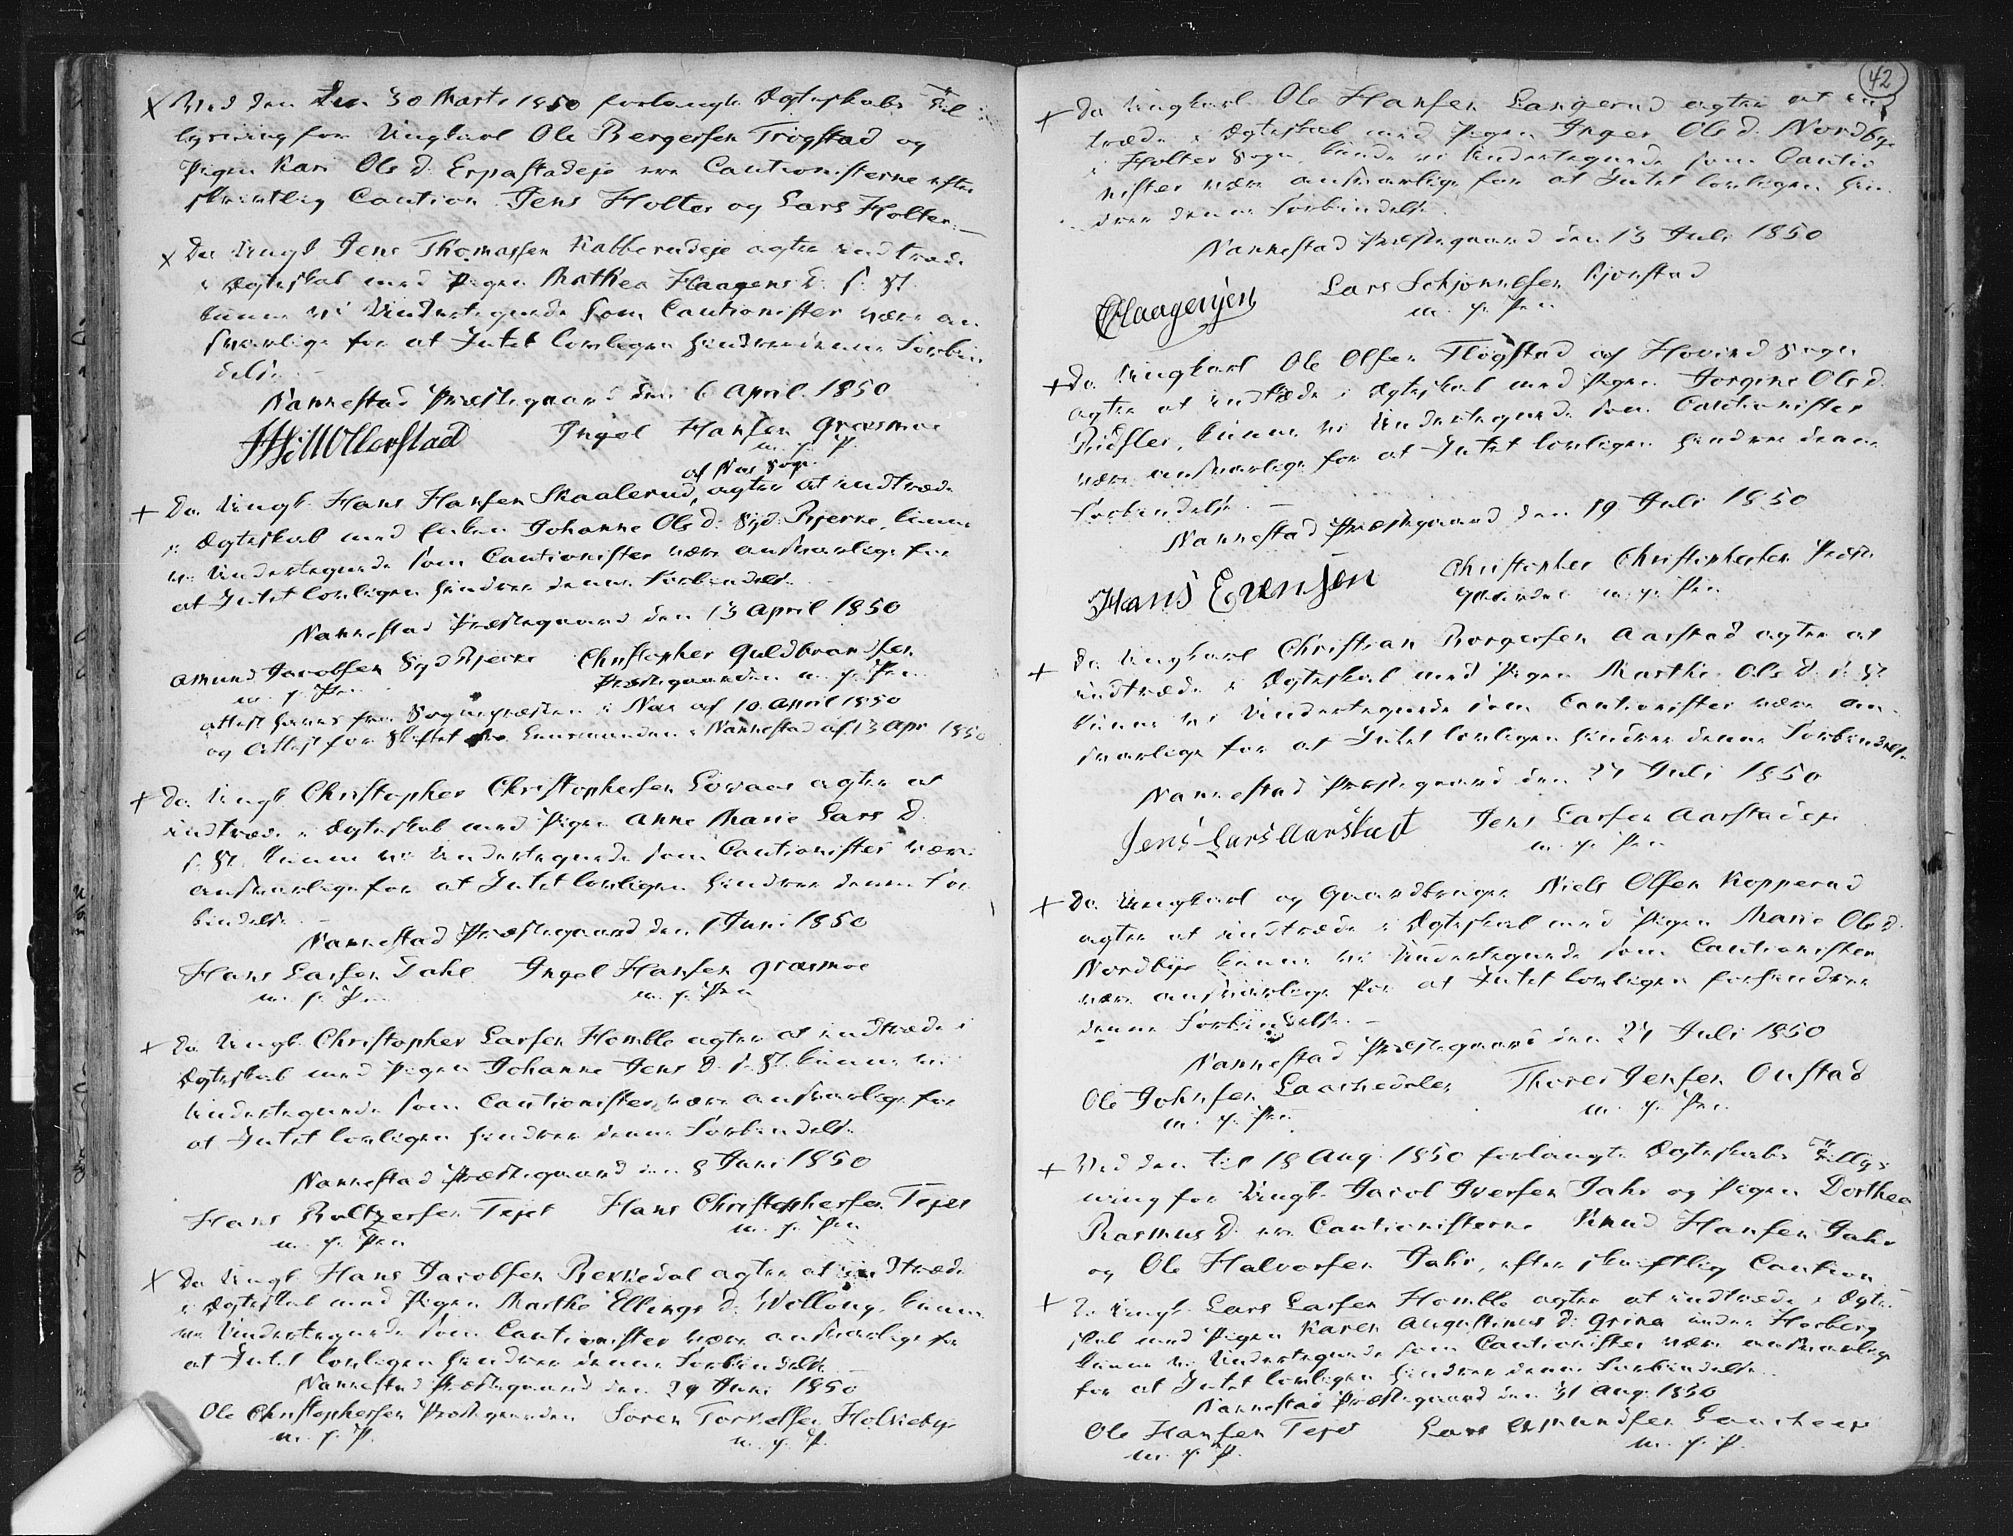 Ved den 30 Marts 1850 forlangte Ægteskabs Til
lysning for Ungkarl Ole Bergersen Trøgstad og
Pigen Kari Olsd. Erpastadeje ere Cautionisterne efter
skriftlig Caution Jens Holter og Lars Holter.
Da Ungk Jens Thomassen Kabberudeje agter indtræde
i Ægteskab med Pigen Mathea Haagens D. s. St.
kunne vi Undertegnede som Cautionister være an
svarlige for at Intet lovligen hindrer denne Forbin
delse.
Nannestad Præstegaard den 6 April 1850
Møllerstad Ingel Hansen Græsmoe
m. p. P.
af Næs Sogn
Da Ungk. Hans Hansen Skaalerud, agter at indtræde
i Ægteskab med Enken Johanne Olsd. Syd Bjerke, kunne
vi Undertegnede som Cautionister være ansvarlige for
at Intet lovligen hindrer denne Forbindelse.
Nannestad Præstegaard den 13 April 1850
Amund Jacobsen Syd Bjerke Christopher Guldbrandsen
m. p. Pen Præstegaarden m. p. Pen
Attest haves fra Sognepræsten i Næs af 10 April 1850
og Attest for Skiftet fra Lensmanden i Nannestad af 13 Apr 1850
Da Ungk. Christopher Christophersen Lovaas agter at
indtræde i Ægteskab med Pigen Anne Marie Lars D.
s. St. kunne vi Undertegnede som Cautionister være
ansvarlige for at Intet lovligen hindrer denne For
bindelse.
Nannestad Præstegaard den 1 Juni 1850
Hans Larsen Dahl Ingel Hansen Græsmoe
m. p. Pen m. p. Pen
Da Ungk. Christopher Larsen Homble agter at indtræde i
Ægteskab med Pigen Johanne Jens D. s. St. kunne vi
Undertegnede som Cautionister, være ansvarlige for
at Intet lovligen hindrer denne Forbindelse.
Nannestad Præstegaard den 8 Juni 1850
Hans Baltzersen Tejet Hans Christophersen Tejet
m. p. Pen m. p. Pen
Da Ungk. Hans Jacobsen Bekkedal agter at indtræde
i Ægteskab med Pigen Marthe Ellings D. Wollong, kunne
vi Undertegnede som Cautionister være ansvarlige for
at Intet lovligen hindrer denne Forbindelse.
Nannestad Præstegaard den 29 Juni 1850
Ole Christophersen Præstegaarden Søren Torkelsen Holkebye
m. p. P. m. p. P.
42
Da Ungkarl Ole Hansen Langerud agter at ind
træde i Ægteskab med Pigen Inger Olsd. Nordbye
i Holter Sogn, kunde vi Undertegnede som Cautio
nister være ansvarlige for at Intet lovligen hin
drer denne Forbindelse.
Nannestad Præstegaard den 13 Juli 1850
Haagensen Lars Schjønnelsen Bjonstad
m. p. Pen
Da Ungkarl Ole Olsen Flogstad af Hovind Sogn
agter at indtræde i Ægteskab med Pigen Jorgine Olsd.
kunne vi Undertegnede som Cautionister
være ansvarlige for at Intet lovligen hindrer denne
Forbindelse.
Nannestad Præstegaard den 19 Juli 1850
Hans Evensen Christopher Christophersen Præste
gaarden m. p. Pen
Da Ungkarl Christian Borgersen Aarstad agter at
indtræde i Ægteskab med Pigen Marthe Ols D. s. St.
kunne vi Undertegnede som Cautionister være an
svarlige for at Intet lovligen hindrer denne Forbindelse.
Nannestad Præstegaard den 27 Juli 1850
Jens Lars Aarstad Jens Larsen Aarstadeje
m. p. Pen
Da Ungkarl og Gaardbruger Niels Olsen Kopperud
agter at indtræde i Ægteskab med Pigen Marie Olsd.
Nordbye kunne vi Undertegnede som Cautionister
være ansvarlige for at Intet lovligen forhindrer
denne Forbindelse.
Nannestad Præstegaard den 27 Juli 1850
Ole Johnsen Laachedalen Thores Jensen Onstad
m. p. Pen m. p. Pen
Ved den til 18 Aug. 1850 forlangte Ægteskabs Tillys
ning for Ungk. Jacob Iversen Dahr og Pigen Dorthea
Rasmus D. ere Cautionisterne Knud Hansen Dahr
og Ole Halvorsen Dahr, efter skriftlig Caution
Da Ungk. Lars Larsen Homble agter at indtræde i Ægte
skab med Pigen Karen Augustinus D. Grina under Horberg
kunne vi Undertegnede som Cautionister være ansvarlige
for at Intet lovligen hindrer denne Forbindelse.
Nannestad Præstegaard den 31 Aug. 1850
Ole Hansen Tejet Lars Amundsen
m. p. P. m. p. P.